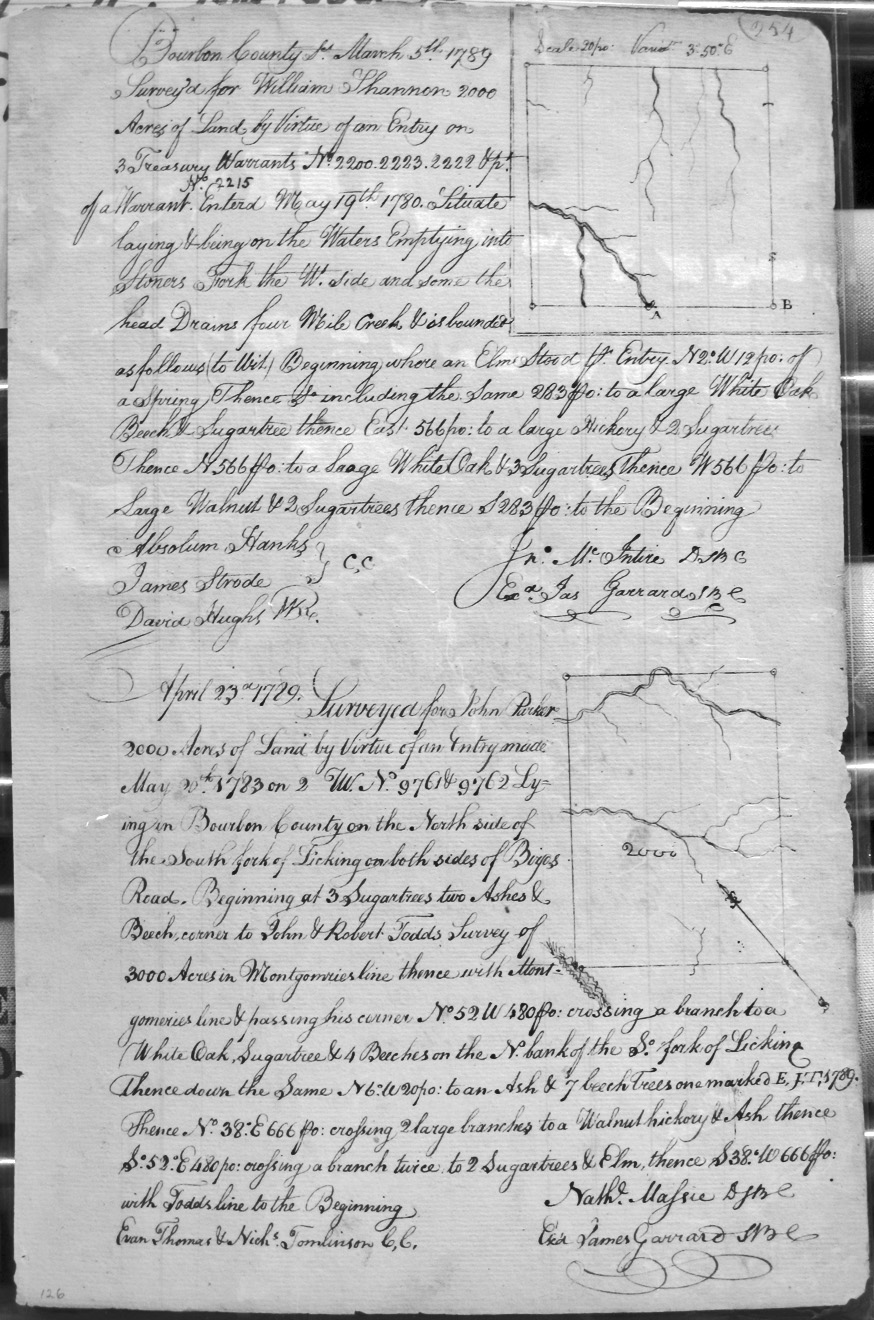 254
Scale 20po: Variat 3°50' E
Bourbon County Sct March 5th 1789
Survey'd for William Shannon 2000
Acres of Land by Virtue of an Entry on
3 Treasury Warrants No. 2200.2223.2222 & pt
No. 2215
of a Warrant. Enterd May 19th 1780. Situate
laying & being on the Waters Emptying into
Stoners Fork the Wt. side and some the
head Drains four Mile Creek & is bounded
A
B
as follows (to Wit) Beginning where an Elm Stood pr. Entry N2°W12po: of
a Spring Thence So including the Same 283po: to a large White Oak
Beech & Sugartree thence East 566po: to a large Hickory & 2 Sugartrees
Thence N566po: to a Laage White Oak & 3 Sugartrees, Thence W566po: to
Large Walnut & 2 Sugartrees thence S283po: to the Beginning
Absolum Hanks
James Strode } C,C
David Hughs Mr.
Jno. Mc. Intire DSBC
Exd. Jas Garrard SBC
April 23d 1789. Surveyed for John Parker
2000 Acres of Land by Virtue of an Entry made
May 20th 1783 on 2 W. No. 9761 & 9762 Ly=
ing in Bourbon County on the North side of
the South fork of Licking on both sides of
Road. Beginning at 3 Sugartrees two Ashes &
Beech, corner to John & Robert Todds Survey of
3000 Acres in Montgomries line thence with Mont-
2000
gomeries line & passing his corner No. 52 W 480po: crossing a branch to a
White Oak, Sugartree & 4 Beeches on the No. bank of the So. fork of Licking
Thence down the Same N6°W20po: to an Ash & 7 beech Trees one marked E,F,T,1789.
Thence No. 38°E 666po: crossing 2 large branches to a Walnut hickory & Ash thence
So. 52°E 480po: crossing a branch twice to 2 Sugartrees & Elm, thence S38°W666po:
with Todds line to the Beginning
Evan Thomas & Nichs. Tomlinson C,C.
Nathl. Massie DSBC
Exd James Garrard SBC
126